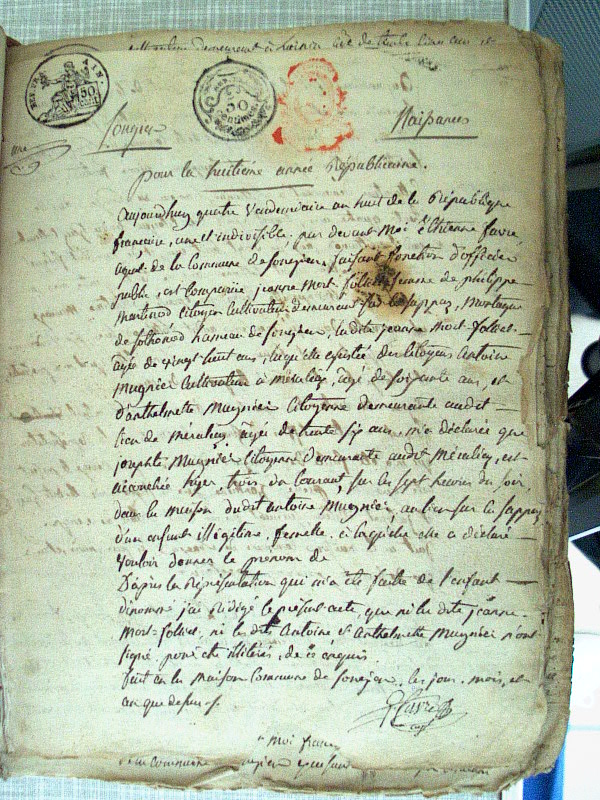 cultivateur demeurant à
DEP. DE L'AIN
50
50
Centimes
Songieu
Naissances
pour la huitième année Républicaine.
aujourd'huy quatre Vendemiaire an huit de la République
française, une et indivisible, par devant moi Ethienne favre,
agent de la Commune de songieu faisant fonction d'officier
public, est comparüe jeanne Mort-follict femme de philippe
Martinod citoyen Cultivateur demeurant sur le sappey, Montagne
de sothonod hameau de songieu, la dite jeanne Mort-follict
agée de vingt huit ans, laquelle assistée des Citoyens Antoine
Mugnier Cultivateur a méraléaz, agé de soixante ans, et
d'anthelmette Mugnier Citoyenne demeurante audit
lieu de méraléaz agée de trente six ans, m'a déclarée que
josephte Mugnier Citoyenne demeurante audit Méraléaz, est
accouchée hyer trois du Courant, sur les sept heures du soir
dans la maison dudit Antoine Mugnier, au lieu sur le sappey
d'un enfant illégitime, femelle, a laquelle elle a déclaré
vouloir donner le prenom de
D'après la représentation qui m'a été faite de l'enfant
dénommé j'ai rédigé le présent acte, que ni la dite jeanne
Mort-follict, ni les dits Antoine et Anthelmette Mugnier n'ont
signé, pour être illiterés, de ce enquis.
fait en la maison Commune de songieu, les jour, mois, et
an que dessus.
favre
agt
moi
commune